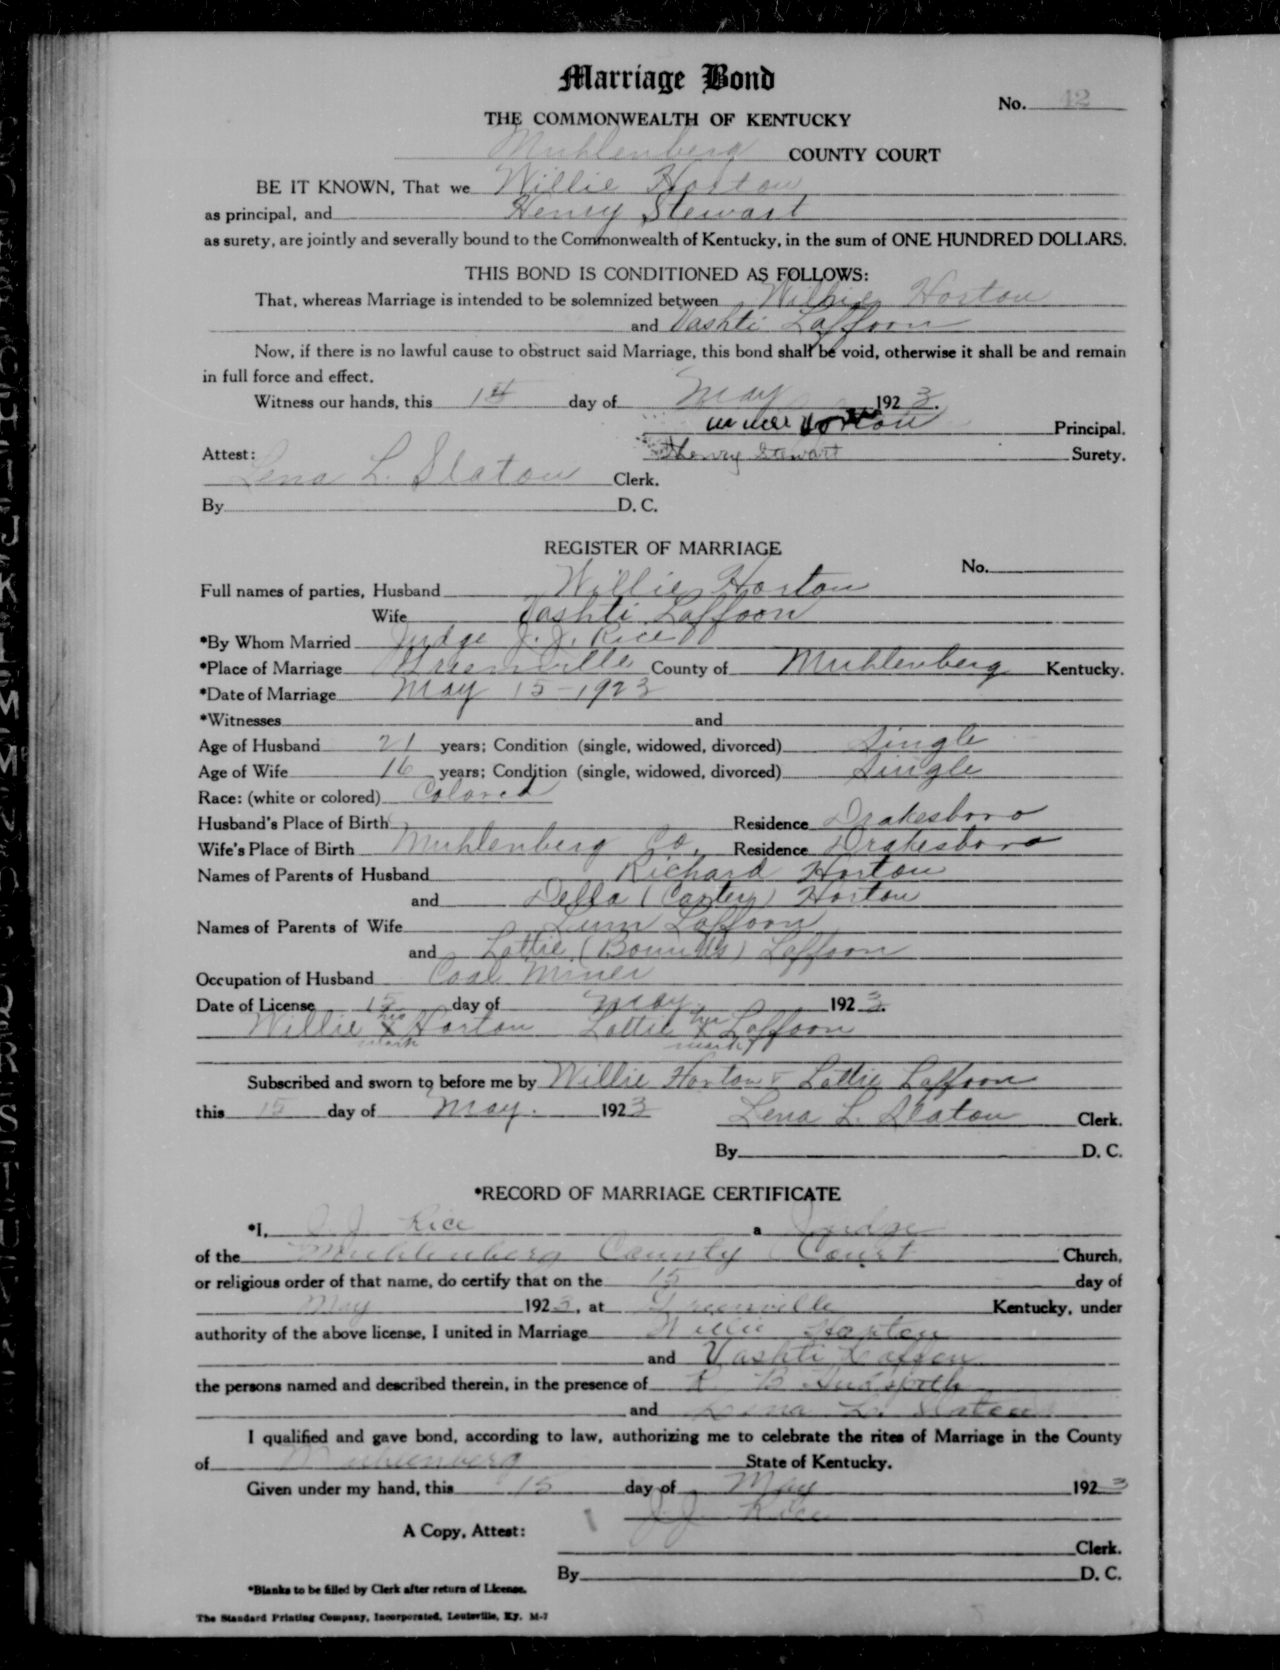 Marriage Bond
No. 42
THE COMMONWEALTH OF KENTUCKY
Muhlenberg COUNTY COURT
BE IT KNOWN, That we Willie Horton
as principal, and Henry Stewart
as surety, are jointly and severally bound to the Commonwealth of Kentucky, in the sum of ONE HUNDRED DOLLARS.
THIS BOND IS CONDITIONED AS FOLLOWS:
That, whereas Marriage is intended to be solemnized between Willie Horton
and Vashti Laffoon
Now, if there is no lawful cause to obstruct said Marriage, this bond shall be void, otherwise it shall be and remain
in full force and effect.
Witness our hands, this 15 day of May 1923.
Horton Principal.
Attest: Henry Stewart Surety.
Lena L. Slaton Clerk.
By D. C.
REGISTER OF MARRIAGE
No.
Full names of parties, Husband Willie Horton
Wife Vashti Laffoon
*By Whom Married Judge J. J. Rice
*Place of Marriage Greenville County of Muhlenberg Kentucky.
*Date of Marriage May 15-1923
*Witnesses and
Age of Husband 21 years; Condition (single, widowed, divorced) Single
Age of Wife 16 years; Condition (single, widowed, divorced) Single
Race: (white or colored) Colored
Husband's Place of Birth Residence Drakesboro
Wife's Place of Birth Muhlenberg Co. Residence Drakesboro
Names of Parents of Husband Richard Horton
and Della (Carter) Horton
Names of Parents of Wife Lum Laffoon
and Lottie (Bounds) Laffoon
Occupation of Husband Coal Miner
Date of License 15 day of May 1923.
Willie his X mark Horton Lottie her X mark Laffoon
Subscribed and sworn to before me by Willie Horton & Lottie Laffoon
this 15 day of May. 1923 Lena L. Slaton Clerk.
By D. C.
*RECORD OF MARRIAGE CERTIFICATE
*I, J. J. Rice a Judge
of the Muhlenberg County Court Church,
or religious order of that name, do certify that on the 15 day of
May 1923, at Greenville Kentucky, under
authority of the above license, I united in Marriage Willie Horton
and Vashti Laffoon
the persons named and described therein, in the presence of R. B. Hudspeth
and Lena L. Slaton
I qualified and gave bond, according to law, authorizing me to celebrate the rites of Marriage in the County
of Muhlenberg State of Kentucky.
Given under my hand, this 15 day of May 1923
J. J. Rice
A Copy, Attest:
Clerk.
By D. C.
*Blanks to be filled by Clerk after return of License.
The Standard Printing Company, Incorporated, Louisville, Ky. M-7